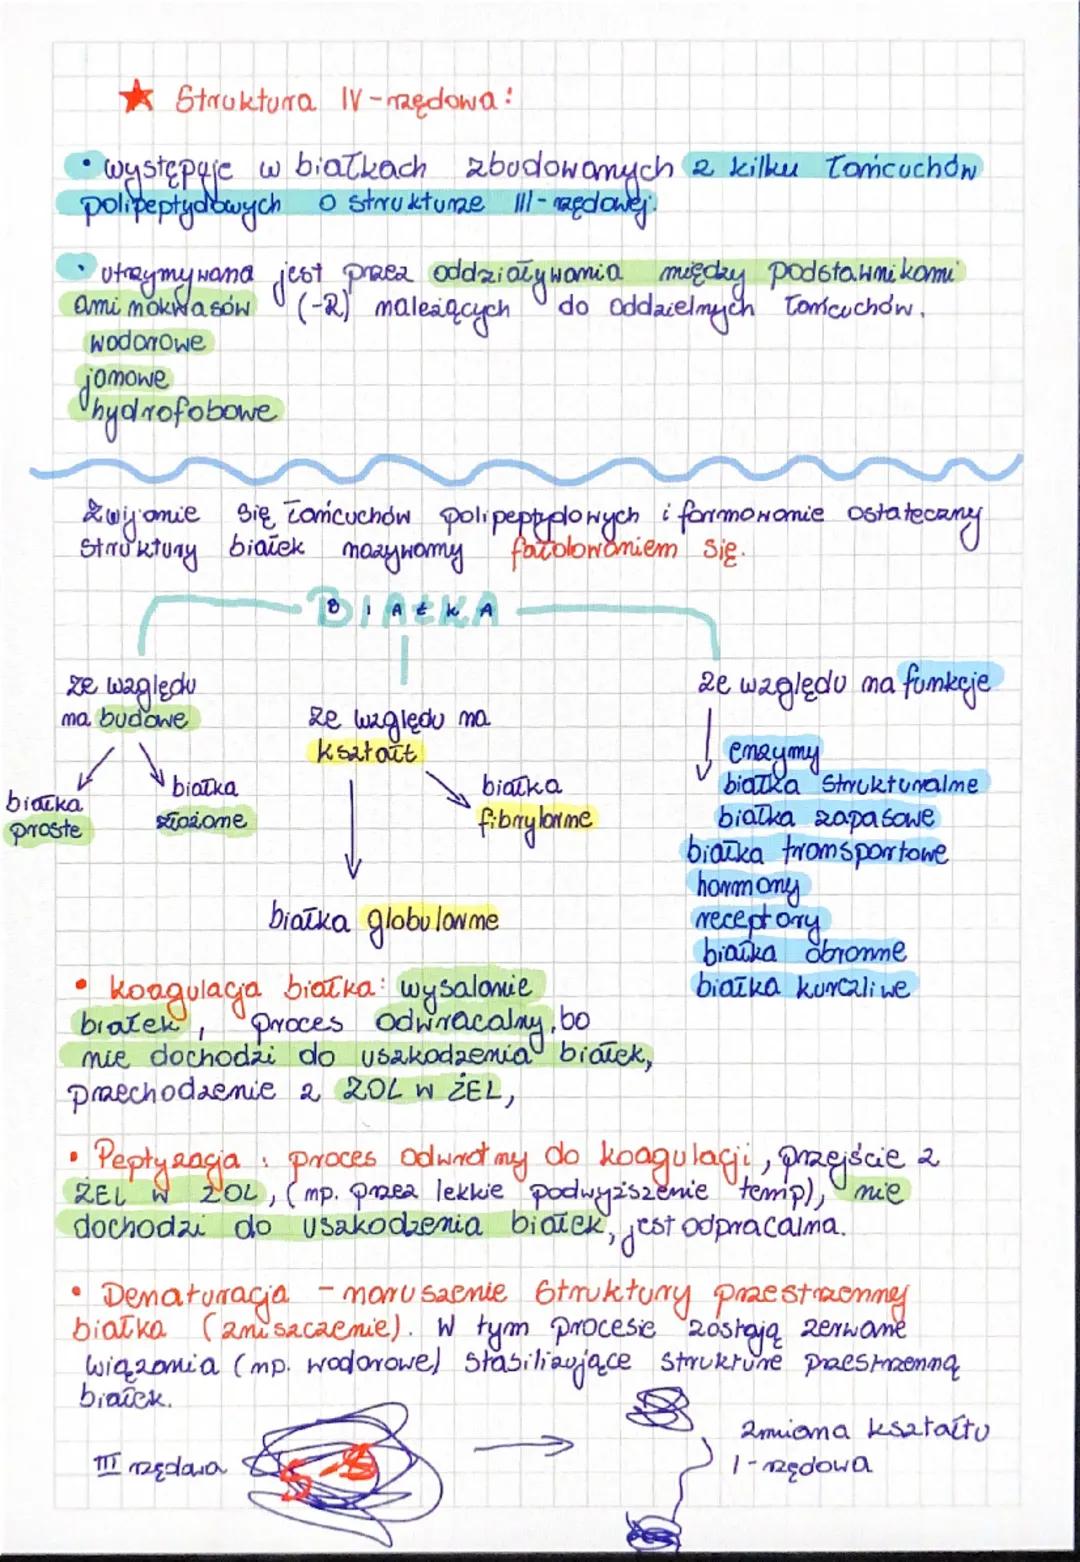 Struktura IV-rzędowa:
• występuje w białkach zbudowanych z kilku łańcuchów
polipeptydowych o strukturze III-rzędowej.
• utrzymywana jest przez oddziaływania między podstawnikami
aminokwasów (-R) należących do oddzielnych łańcuchów.
wodorowe
jonowe
hydrofobowe
Zwijanie się łańcuchów polipeptydowych i formowanie ostateczny
struktury białek nazywamy fałdowaniem się.
BIAŁKA
ze względu
na budowe
białka
proste
białka
złożone
ze względu na
kształt
białka
fibrylarne
białka globularne
ze względu na funkcje
enzymy
białka strukturalne
białka zapasowe
białka transportowe
hormony
receptory
białka obronne
białka kurczliwe
• koagulacja białka: wysalanie
białek, proces odwracalny, bo
nie dochodzi do uszkodzenia białek,
przechodzenie z ZOL w ŻEL,
• Peptyzacja : proces odwrotny do koagulacji, przejście z
ŻEL w ZOL, (np. przez lekkie podwyższenie temp), nie
dochodzi do uszkodzenia białek, jest odpracalna.
• Denaturacja - naruszenie struktury przestrzennej
białka (zniszczenie). W tym procesie zostają zerwane
wiązania (np. wodorowe) stabilizujące strukture przestrzenną
białek.
III rzędowa
zmiana kształtu
I-rzędowa